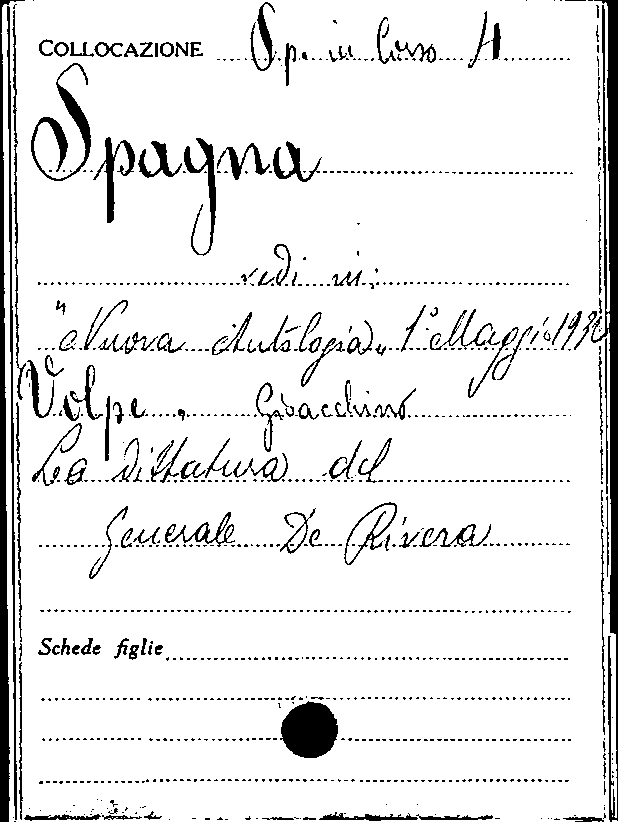 COLLOCAZIONE Sp. in Corso 4
Spagna
vedi in:
"Nuova Antologia" 1° Maggio 1930
Volpe, Gioacchino
La dittatura del
Generale De Rivera
Schede figlie